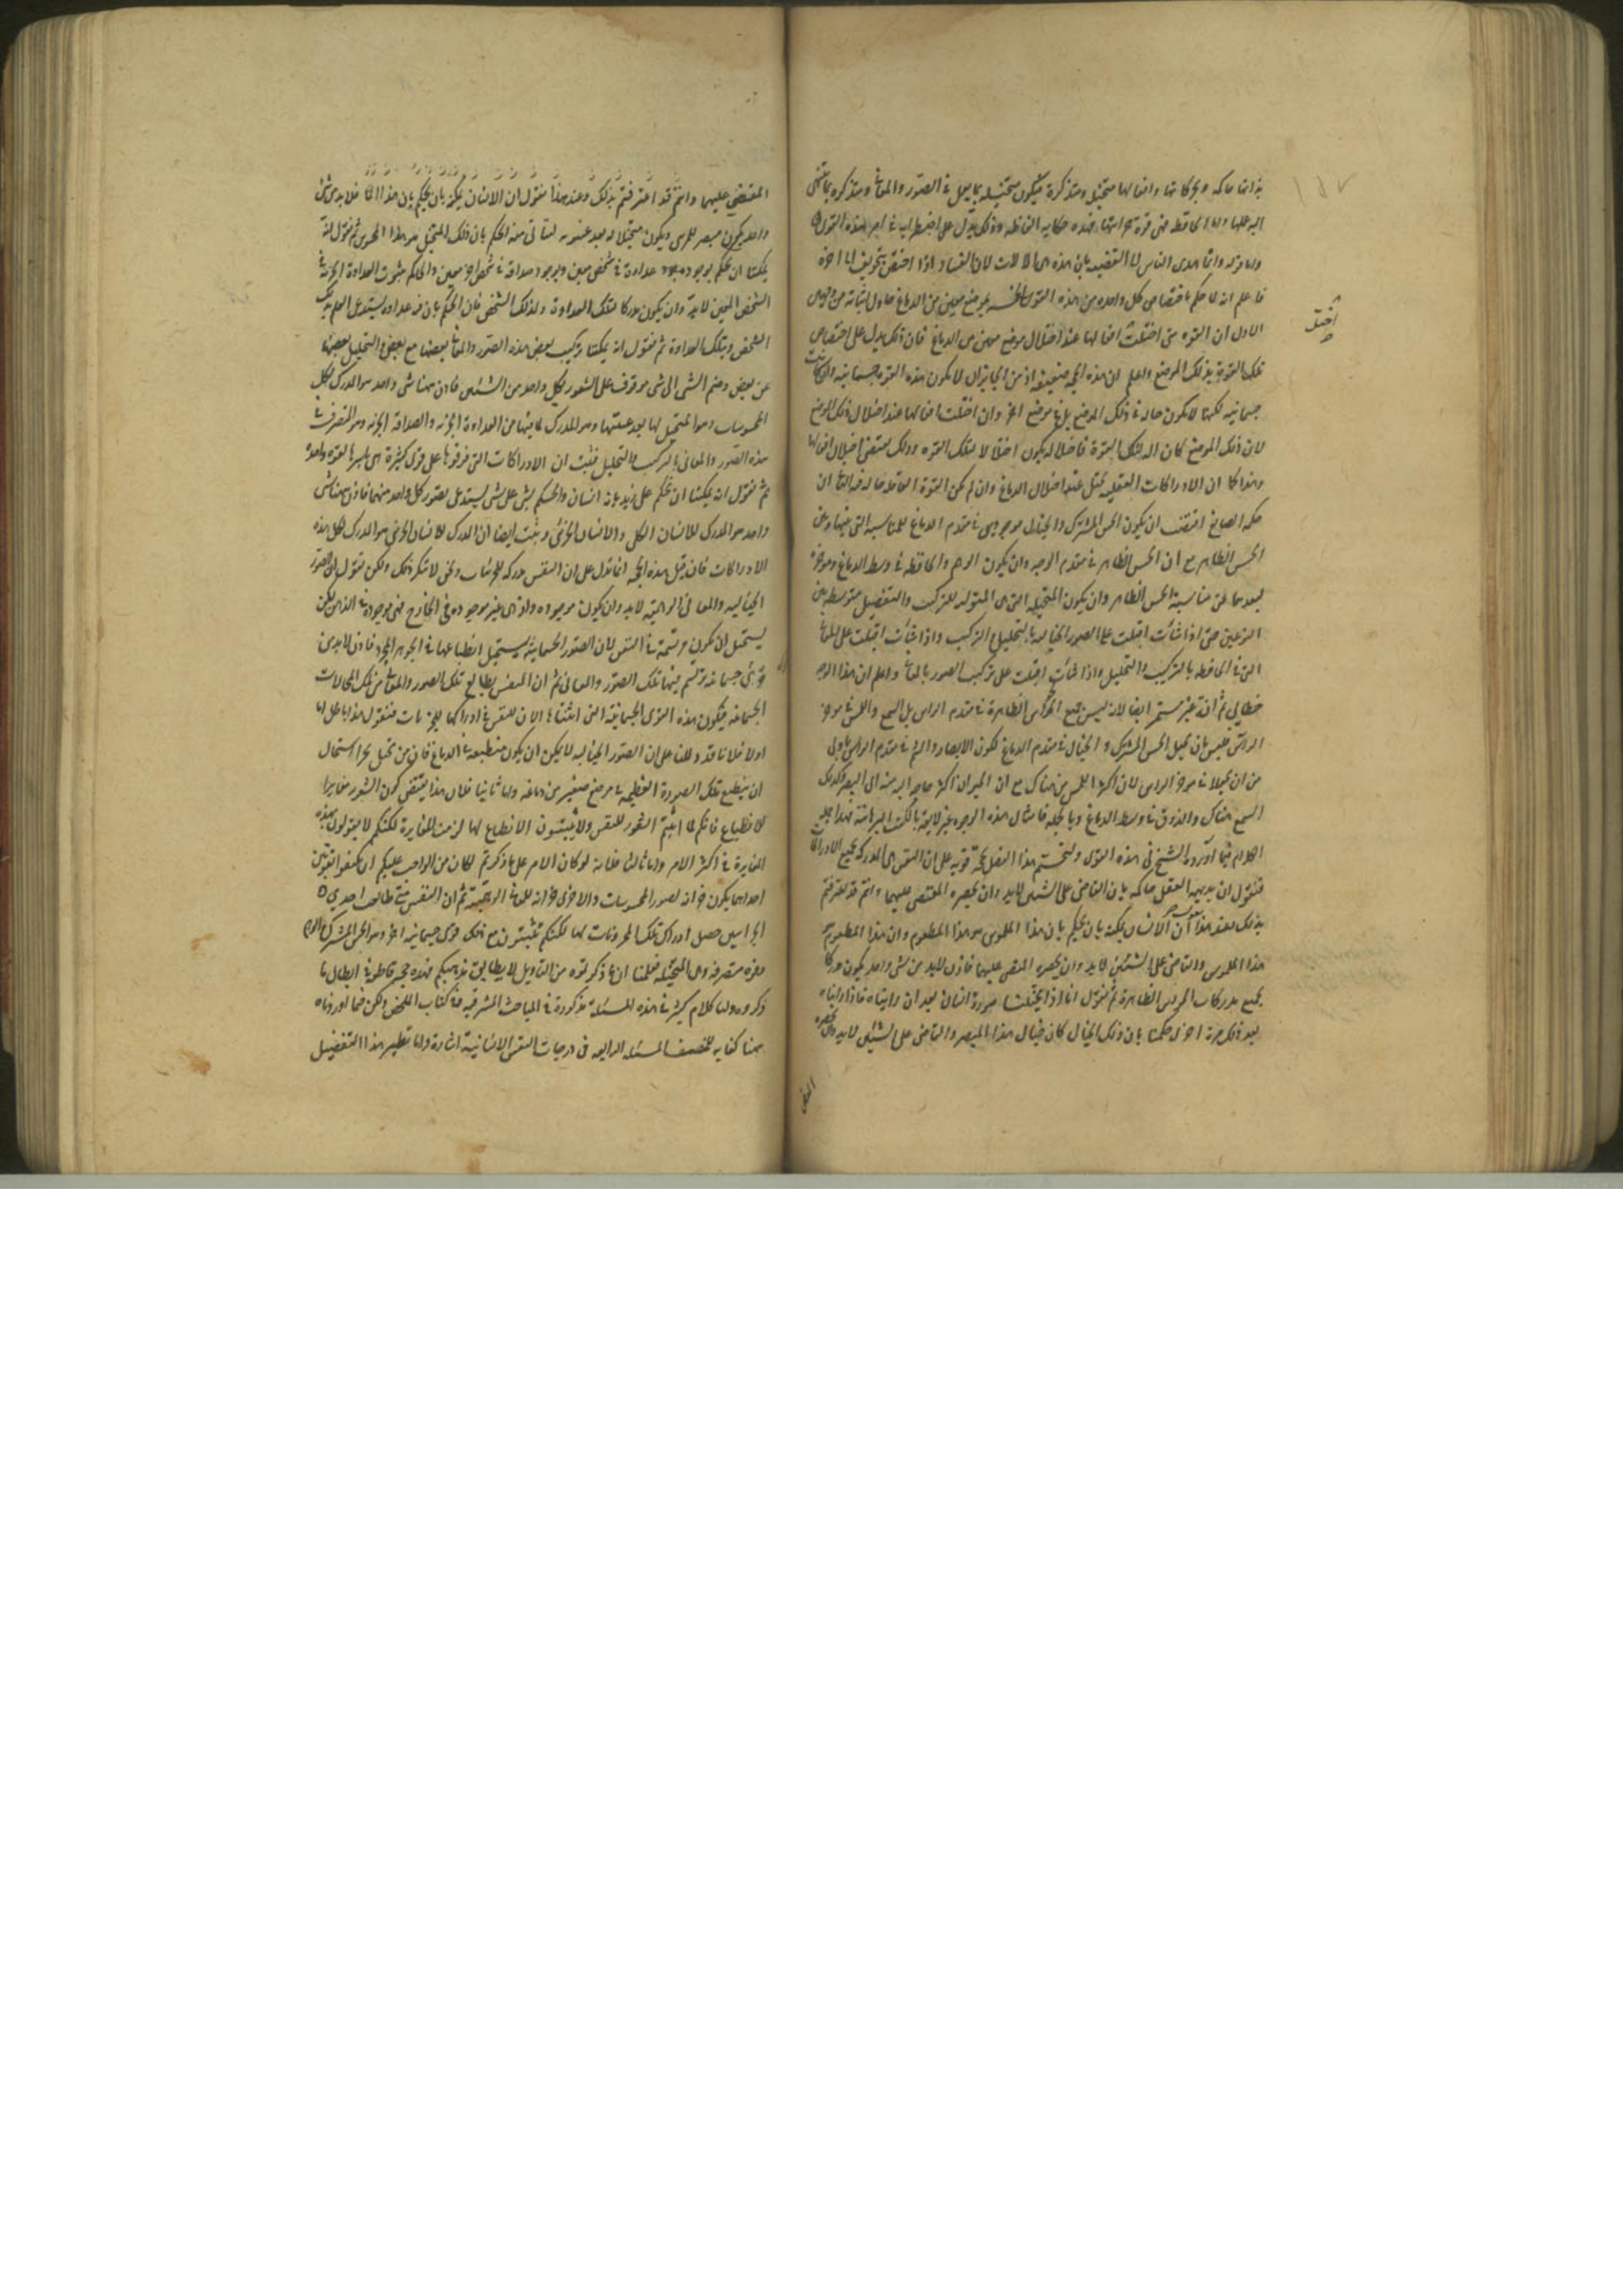 بذاتها حاكمة وبحركاتها وافعالها متخيلة ومتذكرة فيكون متخيلة بما يعمل فى الصور والمعانى ومتذكرة بما ينتهى
اليه عملها واما الحافظة فهى قوة خزانتها فهذه حكاية الفاظه وذلك يدل على اضطرابه فى امر هذه القوى
واما قوله وانما هدى الناس الى القضية بان هذه هى الآلات ان الفساد اذا اختص بتجويف الى آخره
فاعلم انه لما حكم باختصاص كل واحدة من هذه القوى الخمسة بموضع معين من الدماغ حاول اثباته من وجهين
الاول ان القوة متى اختلت افعالها عند اختلال موضع معين من الدماغ فان ذلك يدل على اختصاص
تلك القوة بذلك الموضع واعلم ان هذه الحجة ضعيفة اذ من الجايز ان لا يكون هذه القوة جسمانية وان كانت
جسمانية لكنها لا يكون حالة فى ذلك الموضع بل فى موضع آخر وان اختلت افعالها عند اختلال ذلك الموضع
لان ذلك الموضع كان آلة لتلك القوة فاختلاله يكون اختلالا لتلك القوة وذلك يقتضى اختلال افعالها
وهذا كما ان الادراكات العقلية تختل عند اختلال الدماغ وان لم تكن القوة العاقلة حالة فيه الثانى ان
حكمة الصانع اقتضت ان يكون الحس المشترك والخيال موجودين فى مقدم الدماغ للمناسبة التى بينهما وبين
الحس الظاهر مع ان الحس الظاهر فى مقدم الوجه وان يكون الوهم والحافظة فى وسط الدماغ وموخره
لبعدهما عن مناسبة الحس الظاهر وان يكون المتخيلة التى هى المتولية للتركيب والتفصيل متوسطة بين
النوعين حتى اذا شاءت اقبلت على الصور الخيالية بالتحليل والتركيب واذا شاءت اقبلت على المعانى
التى فى الحافظة بالتركيب والتحليل واذا شاءت اقبلت على تركيب الصور بالمعانى واعلم ان هذا الوجه
خطابى ثم انه غير مستمر ايضا لانه ليس جميع الحواس الظاهرة فى مقدم الراس بل السمع واللمس فى موخر
الراس فليس بان يجعل الحس المشترك والخيال فى مقدم الدماغ لكون الابصار والشم فى مقدم الراس باولى
من ان يجعلا فى موخر الراس لان اكثر اللمس من هناك مع ان الحيوان اكثر حاجة اليه منه الى البصر وكذلك
السمع هناك والذوق فى وسط الدماغ وبالجملة فامثال هذه الوجوه غير لايقة بالكتب البرهانية فهذا جملة
الكلام فيما اورده الشيخ فى هذه القوى ولنختم هذا الفصل بحجة قوية على ان النفس هى المدركة بجميع الادراكات
فنقول ان بديهة العقل حاكمة بان القاضى على الشيئين لابد وان يحضره المقضى عليهما وانتم قد اعترفتم
بذلك فعند هذا نقول ان الانسان يمكنه بان يحكم بان هذا الملموس هو هذا المطعوم وان هذا المطعوم هو
هذا الملموس والقاضى على الشيئين لابد وان يحضره المقضى عليهما فاذن لابد من شى واحد يكون مدركا
بجميع مدركات الحواس الظاهرة ثم نقول انا اذا تخيلنا صورة انسان بعد ان رايناه فاذا رايناه
بعد ذلك مرة اخرى حكمنا بان ذلك الخيال كان خيال هذا المبصر والقاضى على الشيئين لابد وان يحضره
المقضى
المقضى عليهما وانتم قد اعترفتم بذلك وعند هذا نقول ان الانسان يمكنه بان يحكم بان هذا فلابد من شى
واحد يكون مبصرا للمرئى ويكون متخيلا له بعد غيبوبته ليتأتى منه الحكم بان ذلك المتخيل هو هذا المحسوس ثم نقول انه
يمكننا ان نحكم بوجود عداوة فى شخص معين وبوجود صداقة فى شخص آخر معين والحاكم بثبوت العداوة الجزئية فى
الشخص المعين لابد وان يكون مدركا لتلك العداوة ولذلك الشخص فان الحكم بان فيه عداوة يستدعى العلم بذلك
الشخص وبتلك العداوة ثم نقول انه يمكننا تركيب بعض هذه الصور والمعانى بعضها مع بعض والتحليل بعضها
عن بعض وضم الشى الى شى موقوف على الشعور بكل واحد من الشيئين فاذن ههنا شى واحد هو المدرك لكل
المحسوسات وهو المتخيل لها بعد غيبتها وهو المدرك لما فيها من العداوة الجزئية والصداقة الجزئية وهو المتصرف فى
هذه الصور والمعانى بالتركيب والتحليل فثبت ان الادراكات التى فرقوها على قوى كثيرة هى باسرها لقوة واحدة
ثم نقول انه يمكننا ان نحكم على زيد بانه انسان والحكم بشى على شى يستدعى تصور كل واحد منهما فاذن ههنا شى
واحد هو المدرك للانسان الكلى والانسان الجزئى وثبت ايضا ان المدرك للانسان الجزئى هو المدرك لكل هذه
الادراكات فان قيل هذه الحجة انما تدل على ان النفس مدركة للجزئيات ونحن لا ننكر ذلك ولكن نقول ان الصور
الخيالية والمعانى الوهمية لابد وان يكون موجودة واذ هى غير موجودة فى الخارج فهى موجودة فى الذهن لكن
يستحيل ان تكون مرتسمة فى النفس لان الصور الجسمانية يستحيل انطباعها فى الجوهر المجرد فاذن لابد من
قوى جسمانية ترتسم فيها تلك الصور والمعانى ثم ان النفس يطالع تلك الصور والمعانى من تلك المحالات
الجسمانية فيكون هذه القوى الجسمانية التى اثبتناها آلات للنفس فى ادراكها للجزئيات فنقول هذا باطل اما
اولا فلانا قد دللنا على ان الصور الخيالية لا يمكن ان يكون منطبعة فى الدماغ فان من تخيل بحرا استحال
ان ينطبع تلك الصورة العظيمة فى موضع صغير من دماغه واما ثانيا فلان هذا يقتضى كون الشعور مغايرا
للانطباع فانكم لما اثبتم الشعور للنفس ولا تثبتون الانطباع لها لزمت المغايرة لكنكم لا تقولون بهذه
المغايرة فى اكثر الامر واما ثالثا فلانه لو كان الامر على ما ذكرتم لكان من الواجب عليكم ان تكتفوا بقوتين
احداهما يكون خزانة لصور المحسوسات والاخرى خزانة للمعانى الوهمية ثم ان النفس متى طالعت احدى
الخزانتين حصل ادراك تلك المخزونات لها لكنكم تثبتون مع ذلك قوى جسمانية اخر وهو الحس المشترك والوهم
وقوة متصرفة وهى المتخيلة فعلمنا ان ما ذكرتموه من التاويل لا يطابق مذهبكم فهذه حجة قاطعة فى ابطال ما
ذكروه ولنا كلام كثير فى هذه المسئلة مذكورة فى المباحث المشرقية وفى كتاب الملخص ولكن فيما اوردناه
ههنا كفاية للمنصف المسئلة الرابعة فى درجات النفس الانسانية اشارة واما نظير هذا التفصيل